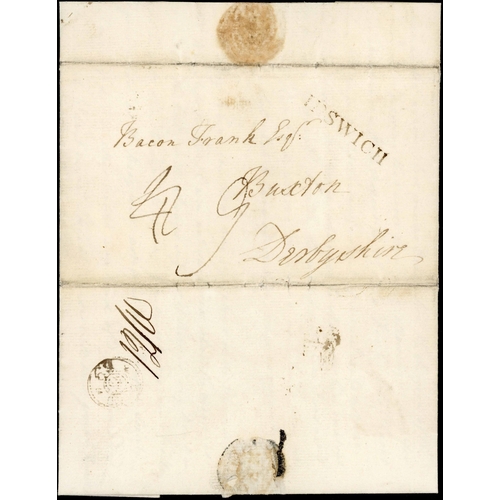 IPSWICH
Bacon Frank Esqr.
Buxton
Derbyshire